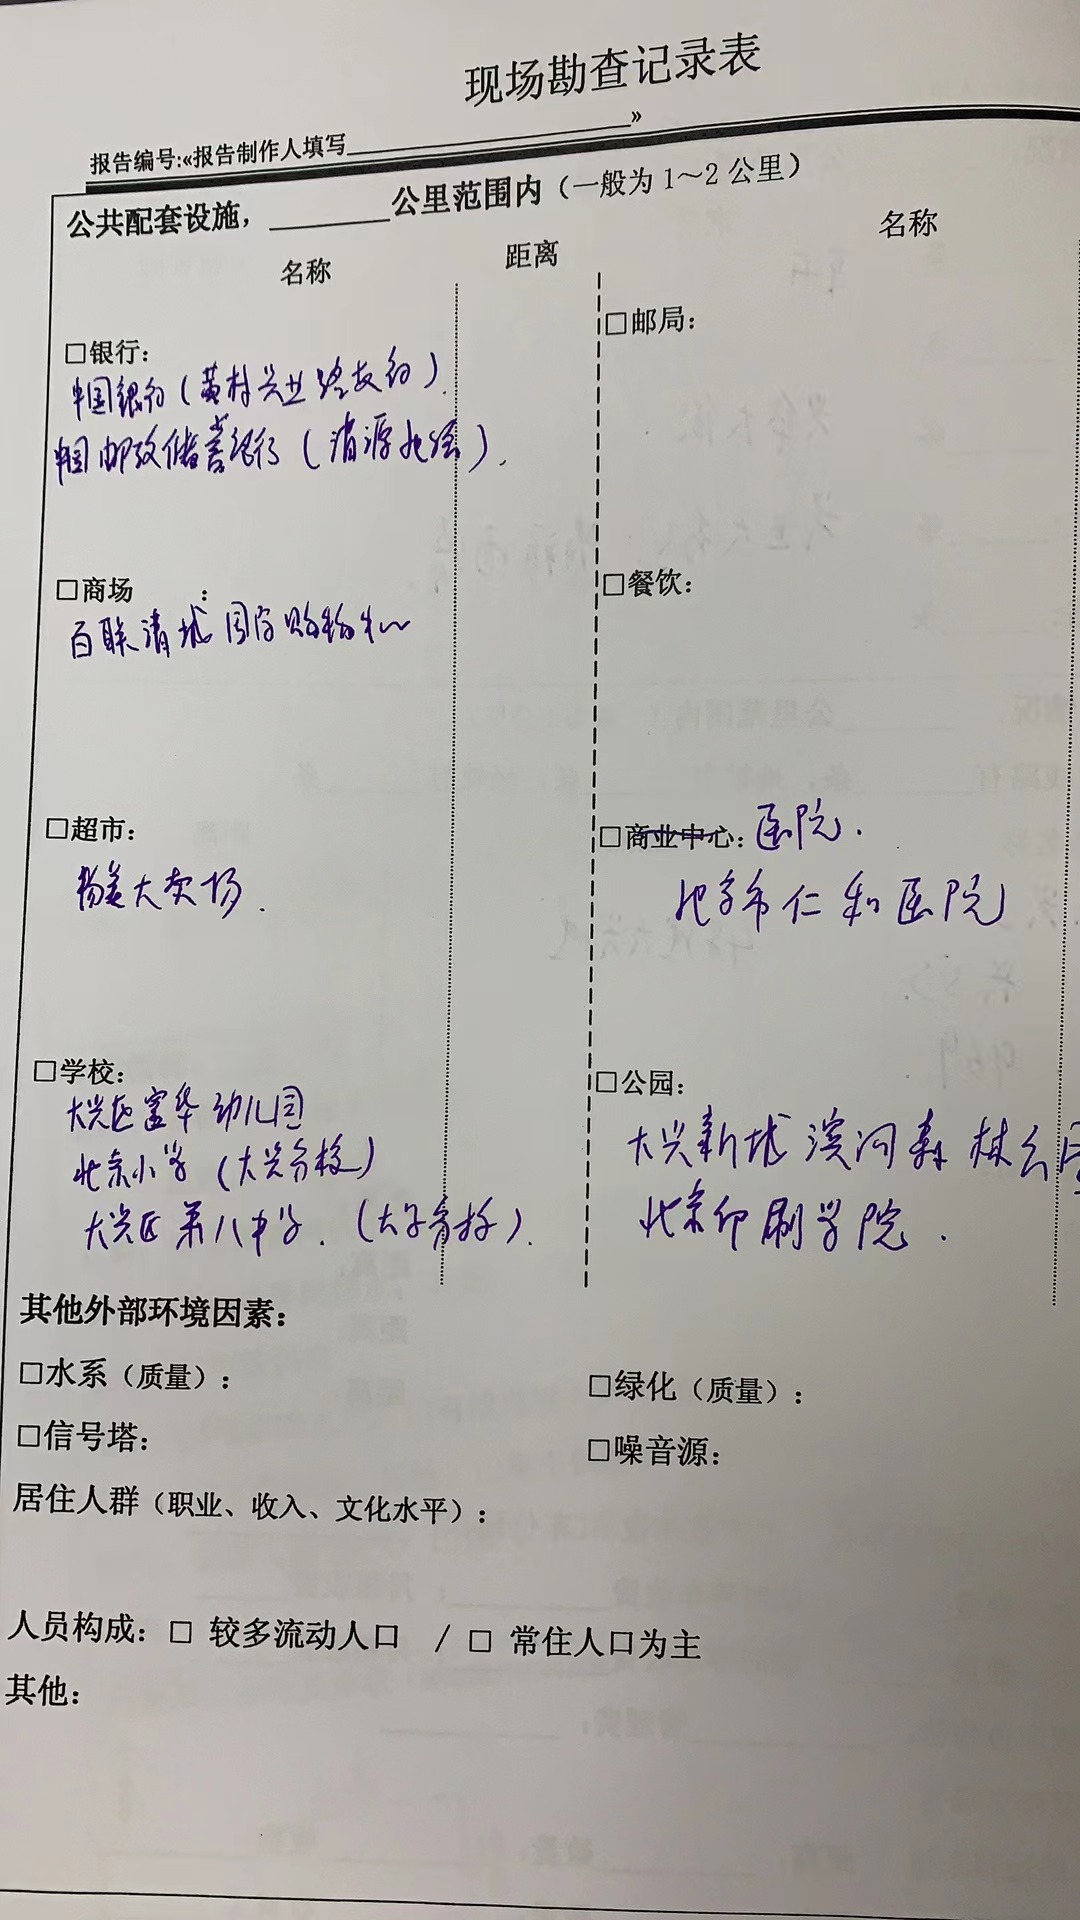 现场勘查记录表
报告编号:«报告制作人填写__________»
公共配套设施，______公里范围内（一般为1～2公里）
名称 距离 名称
□银行：
中国银行（黄村兴业路支行）.
中国邮政储蓄银行（清源北路）.
□邮局：
□商场 ：
百联清城国际购物中心
□餐饮：
□超市：
物美大卖场.
□商业中心：医院.
北京市仁和医院
□学校：
大兴区富华幼儿园
北京小学（大兴分校）
大兴区第八中学.
□公园：
大兴新城滨河森林公园
北京印刷学院.
其他外部环境因素：
□水系（质量）： □绿化（质量）：
□信号塔： □噪音源：
居住人群（职业、收入、文化水平）：
人员构成：□ 较多流动人口 / □ 常住人口为主
其他：